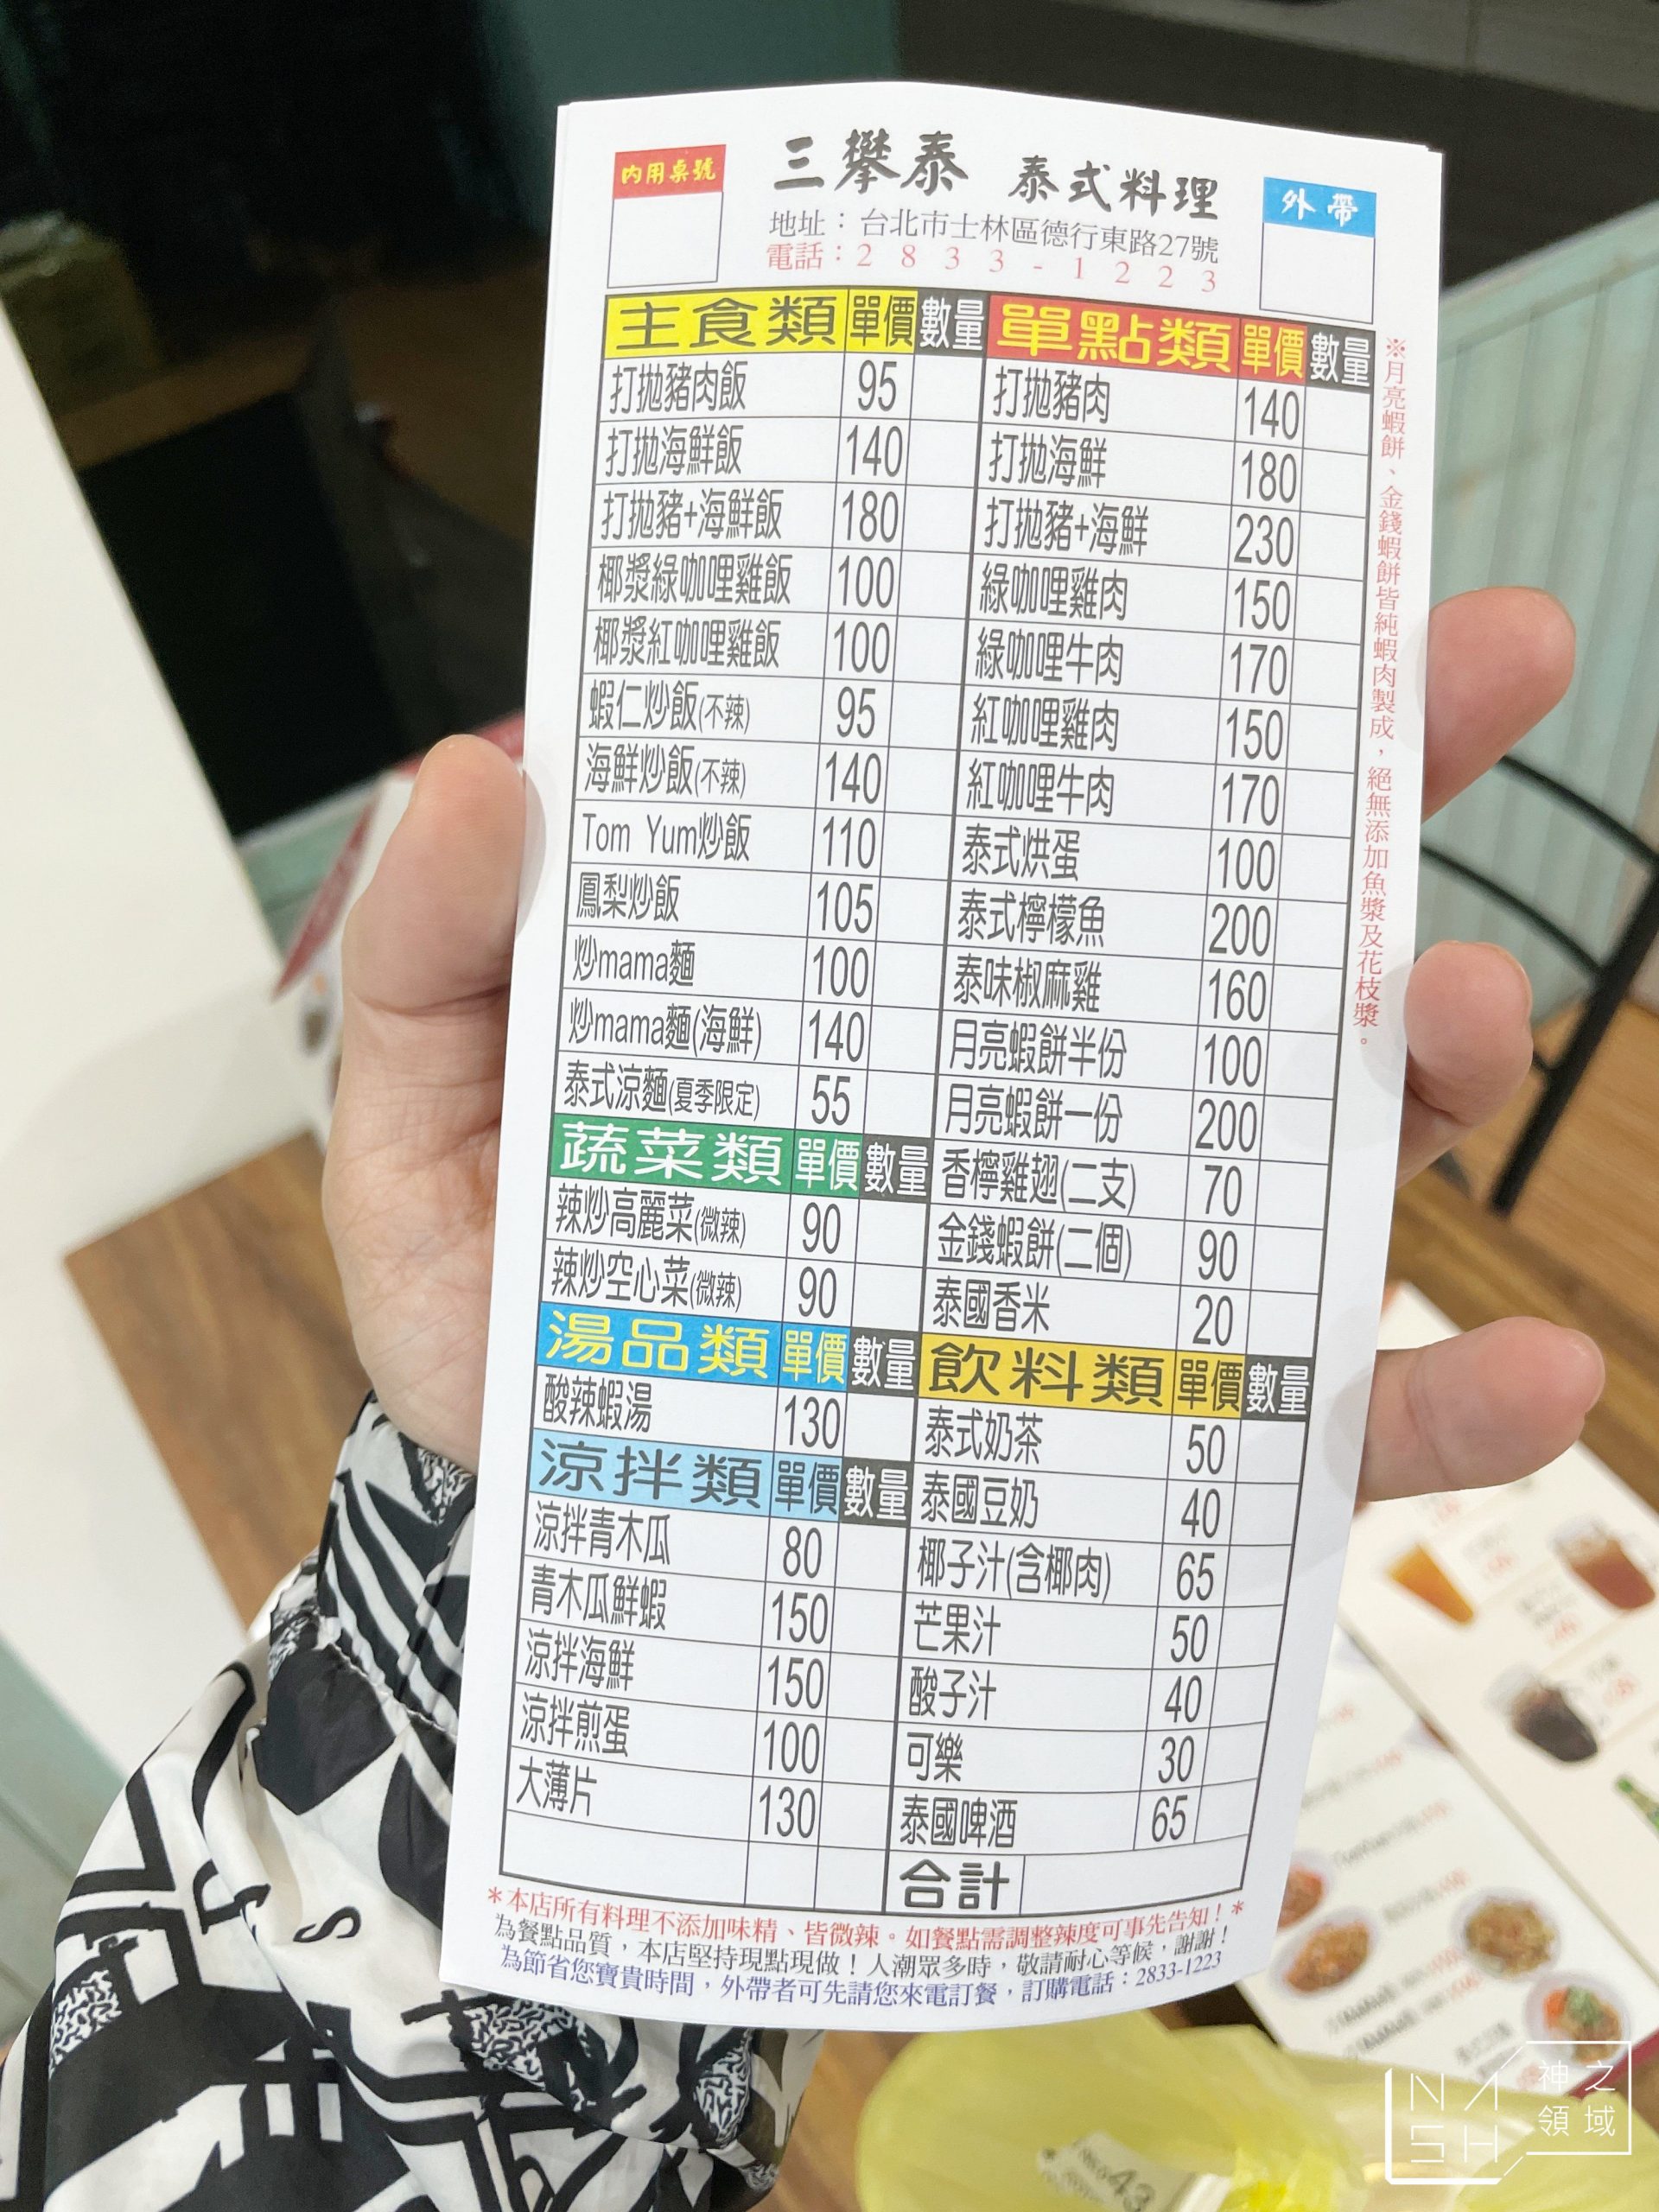 內用桌號
三攀泰 泰式料理
外帶
地址：台北市士林區德行東路27號
電話：2833-1223
主食類 單價 數量
打拋豬肉飯 95
打拋海鮮飯 140
打拋豬+海鮮飯 180
椰漿綠咖哩雞飯 100
椰漿紅咖哩雞飯 100
蝦仁炒飯(不辣) 95
海鮮炒飯(不辣) 140
Tom Yum炒飯 110
鳳梨炒飯 105
炒mama麵 100
炒mama麵(海鮮) 140
泰式涼麵(夏季限定) 55
蔬菜類 單價 數量
辣炒高麗菜(微辣) 90
辣炒空心菜(微辣) 90
湯品類 單價 數量
酸辣蝦湯 130
涼拌類 單價 數量
涼拌青木瓜 80
青木瓜鮮蝦 150
涼拌海鮮 150
涼拌煎蛋 100
大薄片 130
單點類 單價 數量
打拋豬肉 140
打拋海鮮 180
打拋豬+海鮮 230
綠咖哩雞肉 150
綠咖哩牛肉 170
紅咖哩雞肉 150
紅咖哩牛肉 170
泰式烘蛋 100
泰式檸檬魚 200
泰味椒麻雞 160
月亮蝦餅半份 100
月亮蝦餅一份 200
香檸雞翅(二支) 70
金錢蝦餅(二個) 90
泰國香米 20
飲料類 單價 數量
泰式奶茶 50
泰國豆奶 40
椰子汁(含椰肉) 65
芒果汁 50
酸子汁 40
可樂 30
泰國啤酒 65
合計
※月亮蝦餅、金錢蝦餅皆純蝦肉製成，絕無添加魚漿及花枝漿。
＊本店所有料理不添加味精、皆微辣。如餐點需調整辣度可事先告知！＊
為餐點品質，本店堅持現點現做！人潮眾多時，敬請耐心等候，謝謝！
為節省您寶貴時間，外帶者可先請您來電訂餐，訂購電話：2833-1223
NASH
神之領域